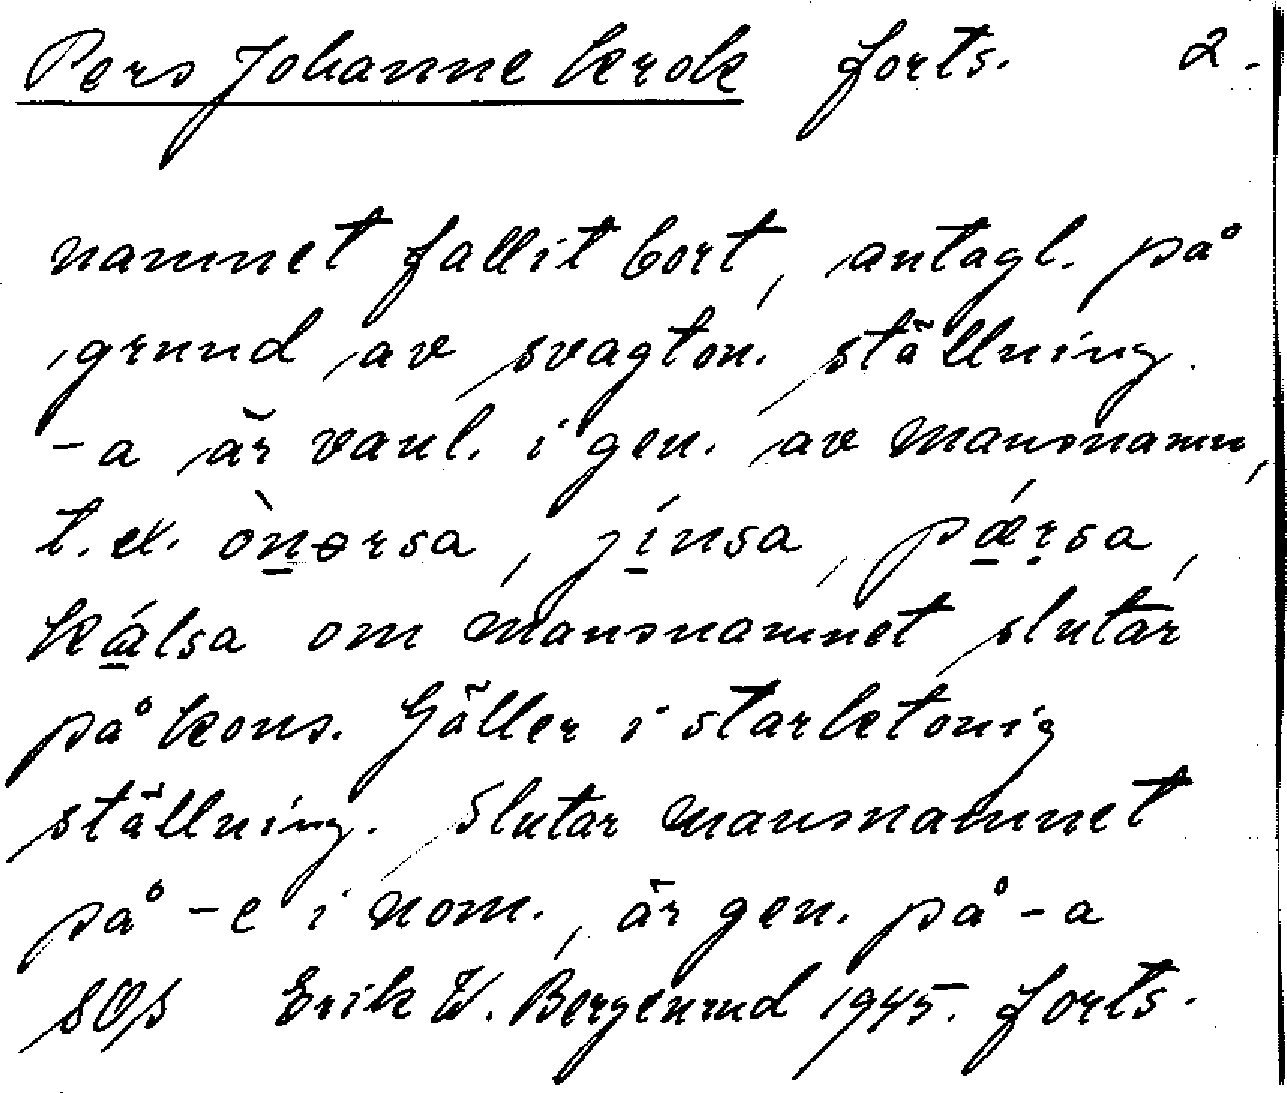 Pers Johanne krok forts. 2.
namnet fallit bort, antagl. på
grund av svagton. ställning.
-a är vanl. i gen. av mansnamn,
t.ex. òn̲ərsa, jí̲nsa, pǽ̲ṛsa,
kǽ̲lsa om mansnamnet slutar
på kons. Gäller i starktonig
ställning. Slutar mansnamnet
på -e i nom., är gen. på -a
Erik W. Bergenrud 1945. forts.